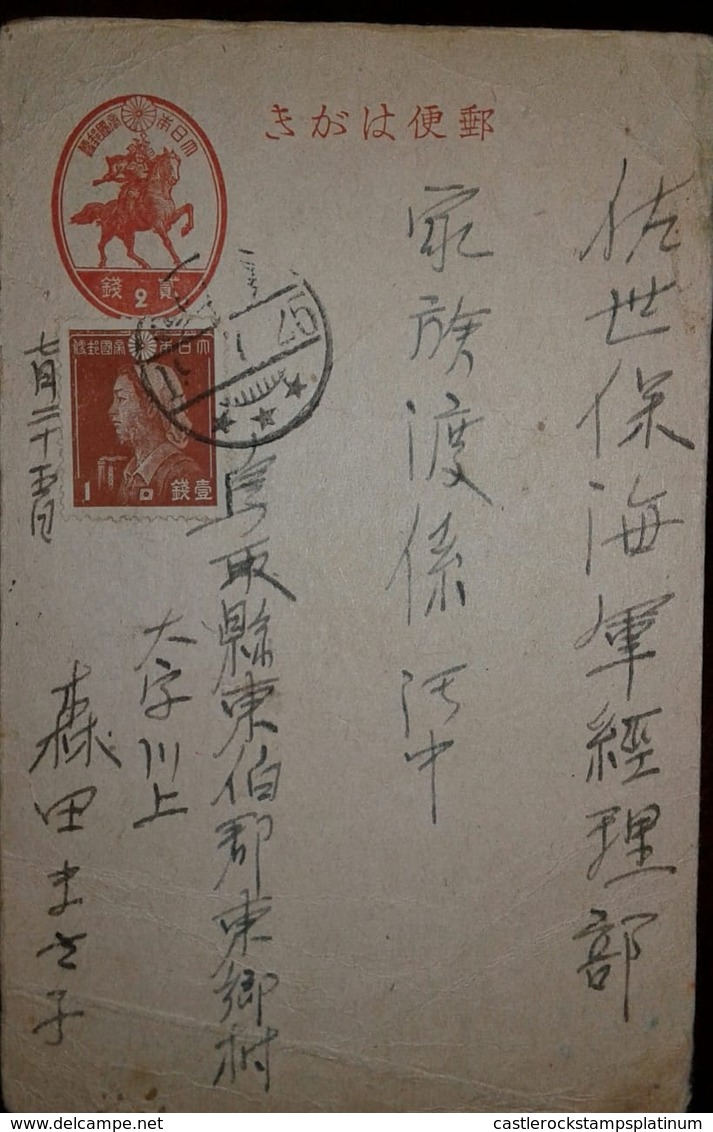 郵便はがき
大日本帝國郵便
貳 2 錢
大日本帝國郵便
1 壹錢
佐世保海軍經理部
家族渡係 御中
鳥取縣東伯郡東郷村
大字川上
森田まさ子
七月二十五日
castlerockstampsplatinum